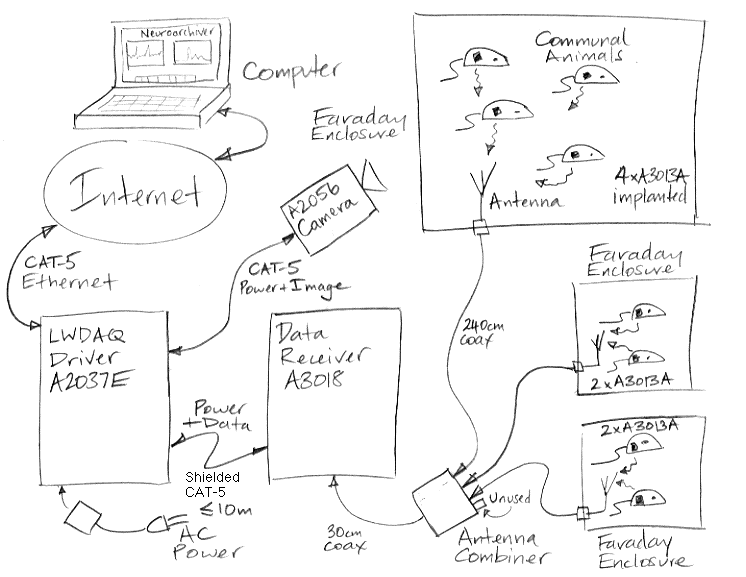 Neuroarchiver
Computer
Internet
Faraday
Enclosure
Communal
Animals
4xA3013A
implanted
Antenna
A2056
Camera
CAT-5
Ethernet
CAT-5
Power+Image
240cm
coax
Faraday
Enclosure
2xA3013A
LWDAQ
Driver
A2037E
Data
Receiver
A3018
Power
+Data
Shielded
CAT-5
≤10m
AC
Power
30cm
coax
Unused
Antenna
Combiner
2xA3013A
Faraday
Enclosure